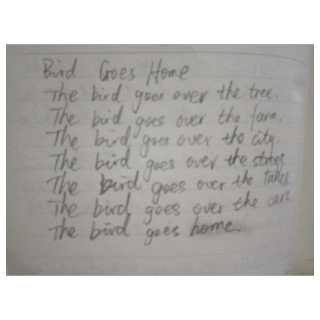 Bird Goes Home
The bird goes over the tree.
The bird goes over the farm.
The bird goes over the city.
The bird goes over the street.
The bird goes over the lakes
The bird goes over the cart
The bird goes home.